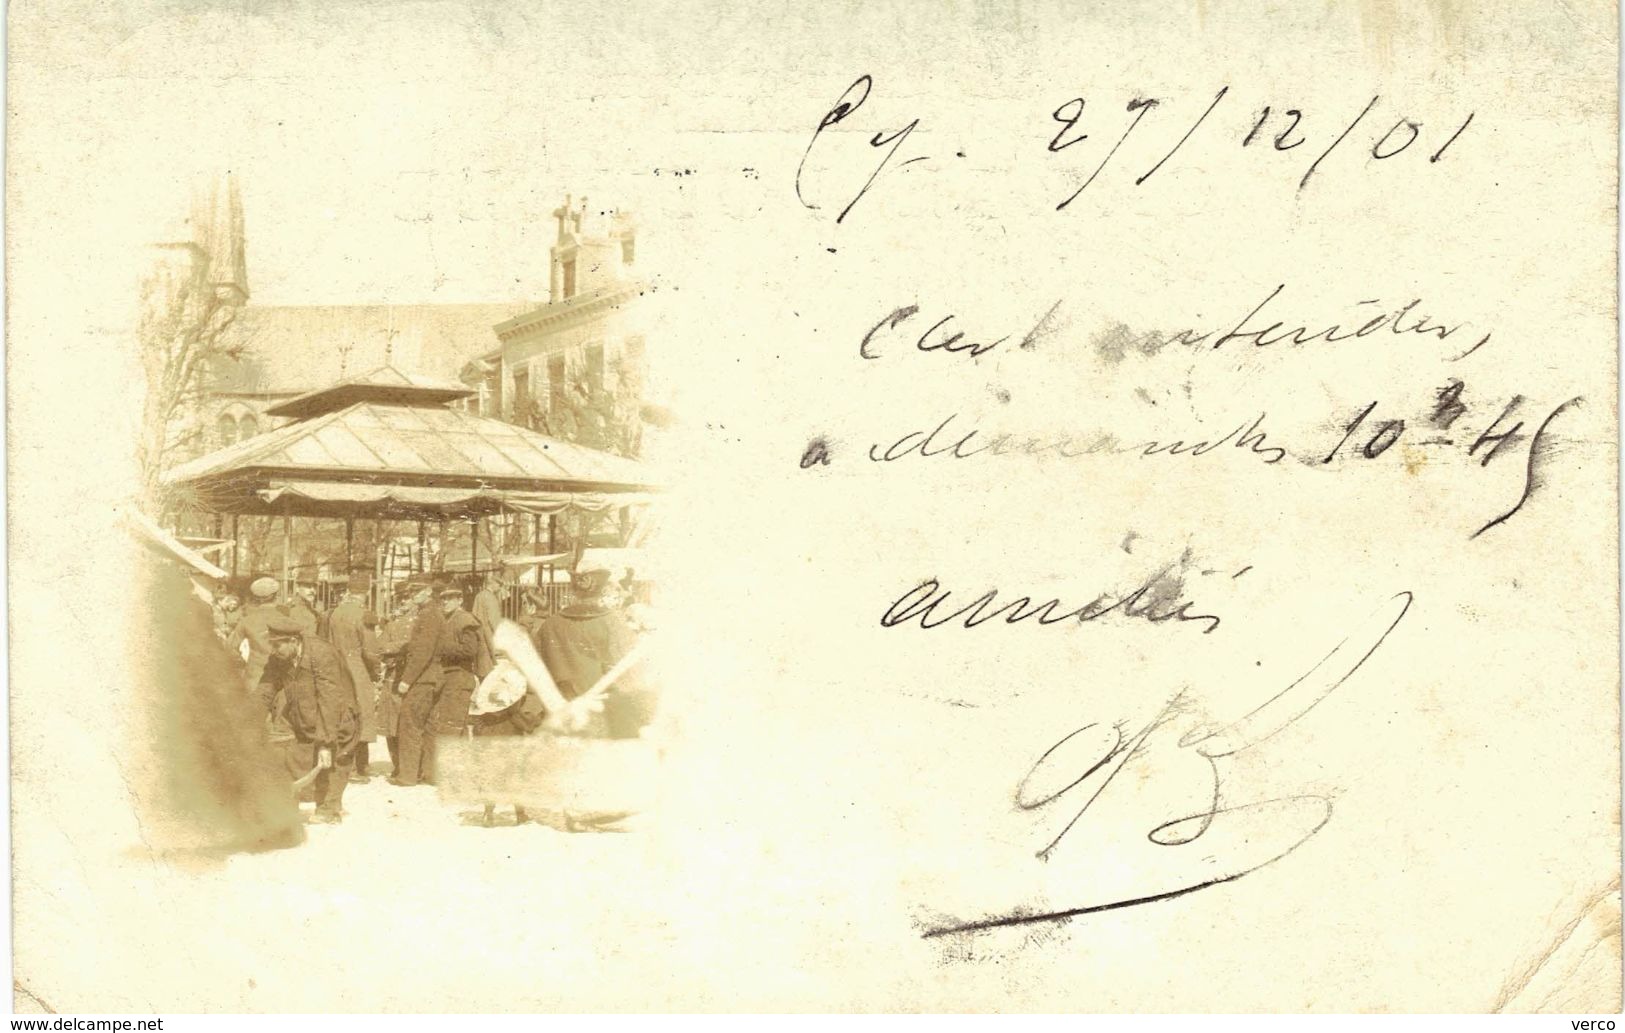 Cy. 27/12/01
c'est entendu,
a dimanche 10 h 45
amitiés
www.delcampe.net
verco